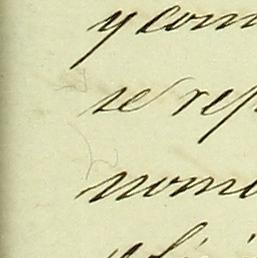 y com
se rep
nom